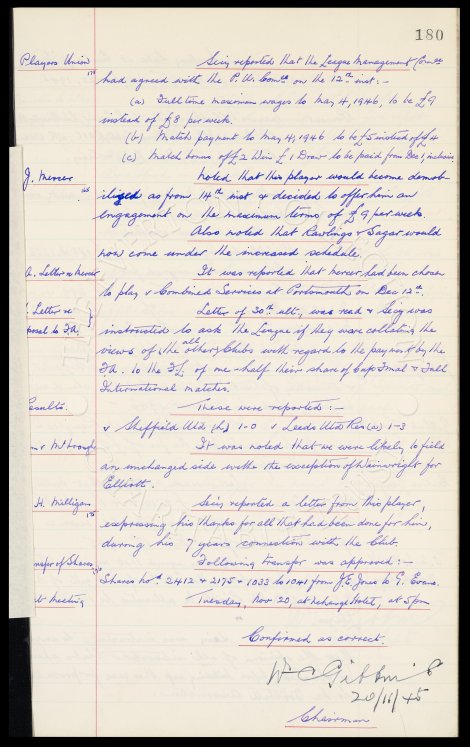 180
Players Union
Secy reported that the League Management Com^ee
had agreed with the P.U. Com^ee on the 12th inst:-
(a) Full time maximum wages to May 4, 1946, to be £9
instead of £8 per week.
(b) Match payment to May 4, 1946 to be £5 instead of £4
(c) Match bonus of £2 Win £1 Draw to be paid from Dec 1, inclusive
J. Mercer
Noted that this player would become demob-
ilized as from 14th inst & decided to offer him an
engagement on the maximum terms of £9 per week.
Also noted that Rawlings & Sagar would
now come under the increased schedule.
A. Letter re Mercer
It was reported that Mercer had been chosen
to play v Combined Services at Portsmouth on Dec 12th.
Letter re
posal to F.A.
Letter of 30th ult, was read & Secy was
instructed to ask the League if they were collating the
views of all the other Clubs with regard to the payment by the
F.A. to the F.L. of one-half their share of Cup Final & Full
International matches.
esults.
These were reported:-
v Sheffield Utd (h) 1-0 v Leeds Utd Res (a) 1-3
It was noted that we were likely to field
an unchanged side with the exception of Wainwright for
Elliott.
H. Milligan
Secy reported a letter from this player,
expressing his thanks for all that had been done for him,
during his 7 years connection with the Club.
nsfer of Shares
Following transfer was approved:-
Shares Nos 2412 & 2175 & 1033 to 1041 from J.E. Jones to G. Evans.
t Meeting
Tuesday, Nov 20, at Exchange Hotel, at 5pm
Confirmed as correct.
W C Gibbins
20/11/45
Chairman